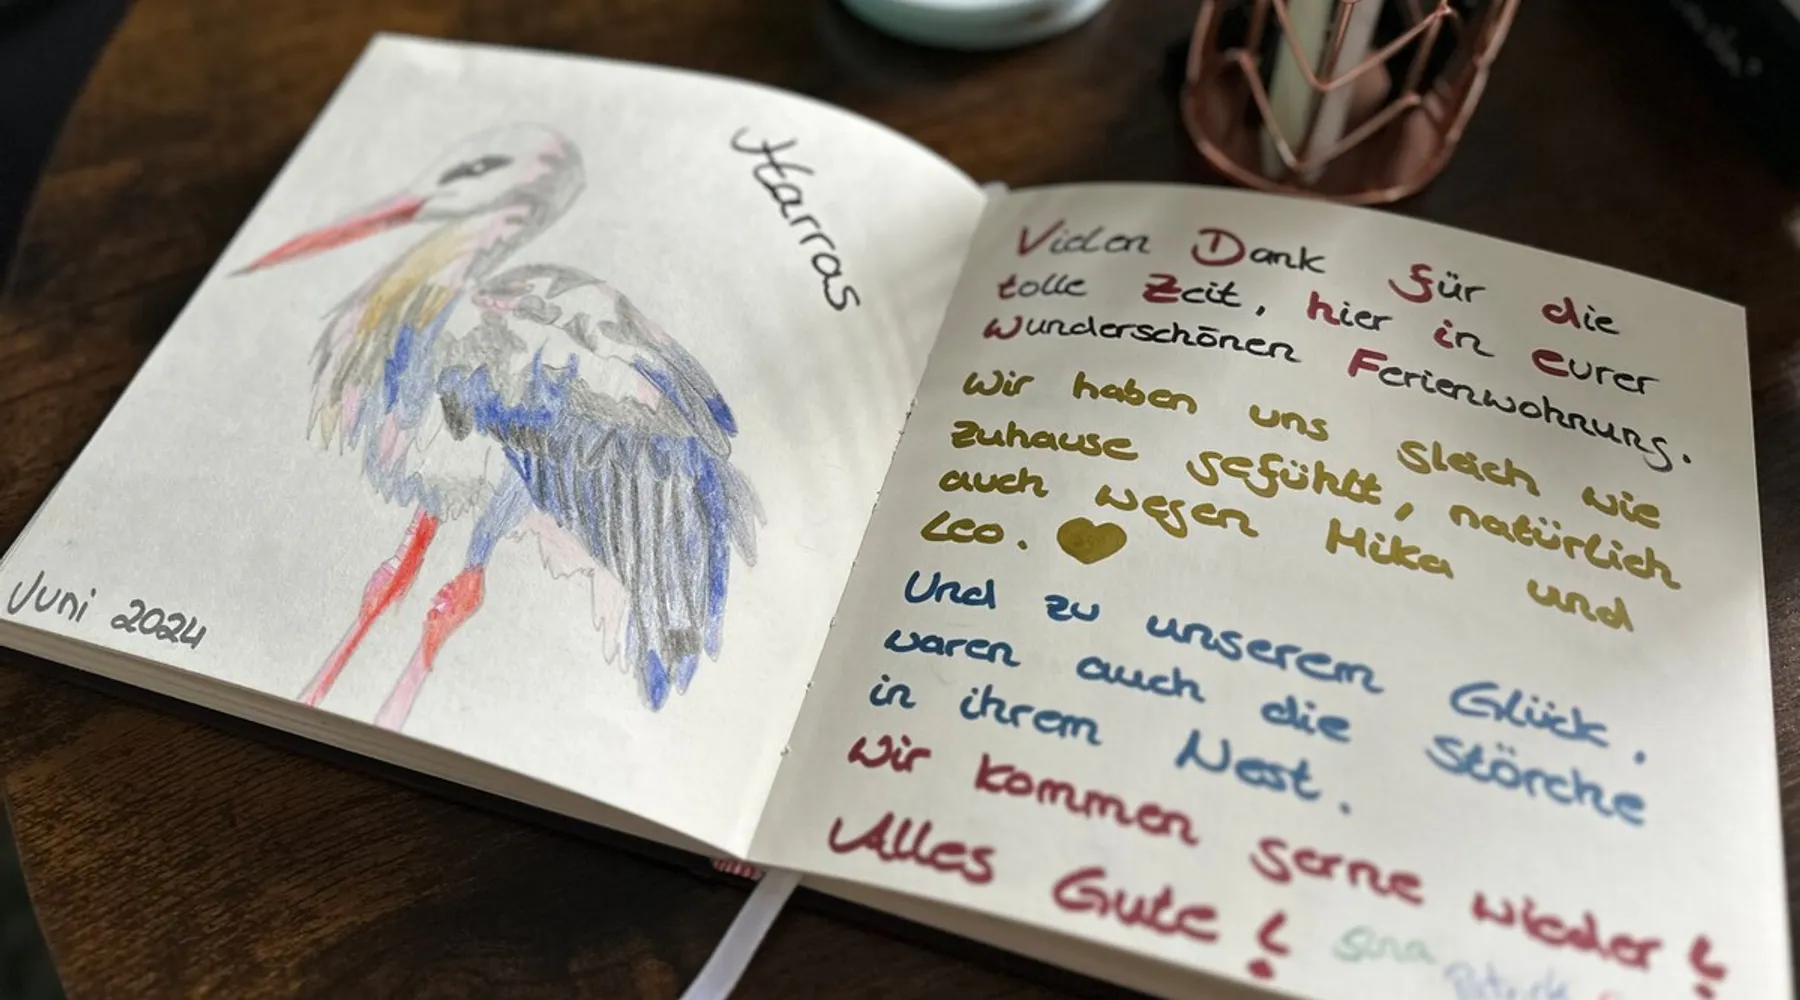 Harras
Juni 2024
Vielen Dank für die
tolle Zeit, hier in eurer
wunderschönen Ferienwohnung.
Wir haben uns gleich wie
zuhause gefühlt, natürlich
auch wegen Mika und
Leo.
Und zu unserem Glück,
waren auch die Störche
in ihrem Nest.
Wir kommen gerne wieder!
Alles Gute!